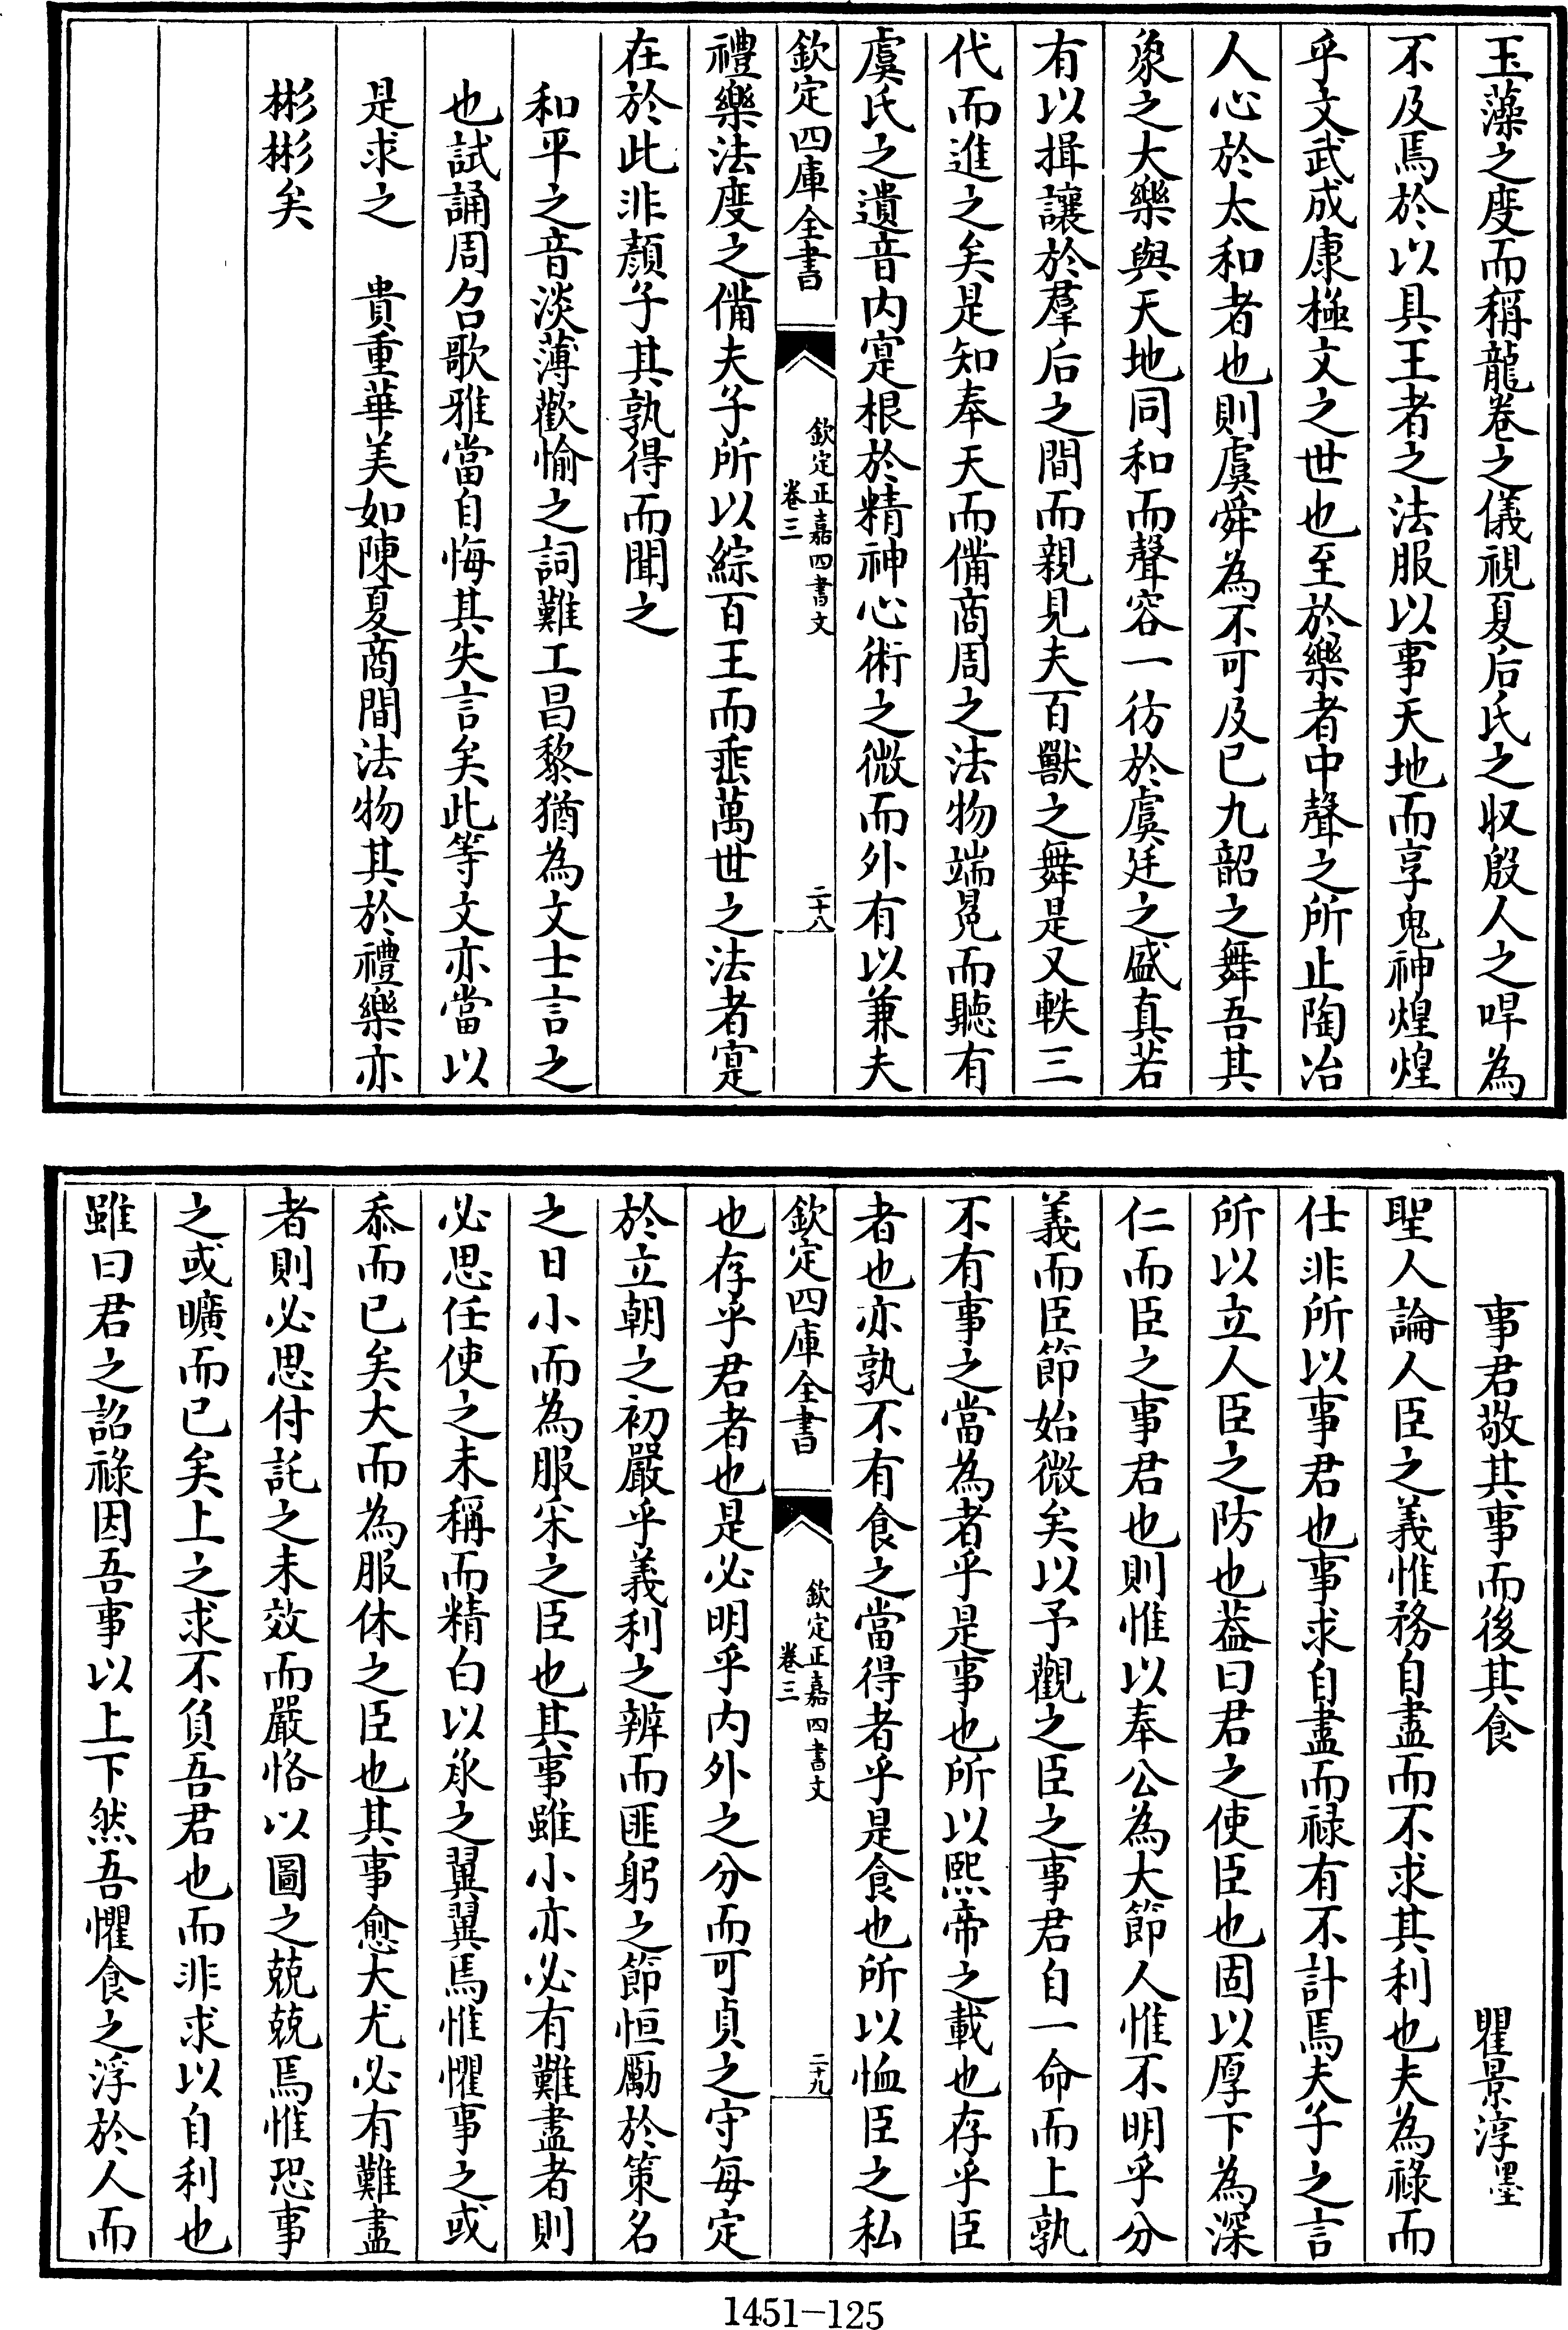 玉藻之度而稱龍卷之儀視夏后氏之収殷人之哻為
不及焉於以具王者之法服以事天地而享鬼神煌煌
乎文武成康極文之世也至於樂者中聲之所止陶冶
人心於太和者也則虞舜為不可及已九韶之舞吾其
象之大樂與天地同和而聲容一彷於虞廷之盛真若
有以揖讓於羣后之間而親見夫百獸之舞是又軼三
代而進之矣是知奉天而備商周之法物端冕而聽有
虞氏之遺音内寔根於精神心術之微而外有以兼夫
欽定四庫全書
欽定正嘉四書文
卷三
二十八
禮樂法度之備夫子所以綜百王而垂萬世之法者寔
在於此非顏子其孰得而聞之
和平之音淡薄歡愉之詞難工昌黎猶為文士言之
也試誦周召歌雅當自悔其失言矣此等文亦當以
是求之 貴重華美如陳夏商間法物其於禮樂亦
彬彬矣
事君敬其事而後其食 瞿景淳墨
聖人論人臣之義惟務自盡而不求其利也夫為祿而
仕非所以事君也事求自盡而祿有不計焉夫子之言
所以立人臣之防也葢曰君之使臣也固以厚下為深
仁而臣之事君也則惟以奉公為大節人惟不明乎分
義而臣節始微矣以予觀之臣之事君自一命而上孰
不有事之當為者乎是事也所以熙帝之載也存乎臣
者也亦孰不有食之當得者乎是食也所以恤臣之私
欽定四庫全書
欽定正嘉四書文
卷三
二十九
也存乎君者也是必明乎内外之分而可貞之守每定
於立朝之初嚴乎義利之辨而匪躬之節恒勵於策名
之日小而為服采之臣也其事雖小亦必有難盡者則
必思任使之未稱而精白以承之翼翼焉惟懼事之或
忝而已矣大而為服休之臣也其事愈大尤必有難盡
者則必思付託之未效而嚴恪以圖之兢兢焉惟恐事
之或曠而已矣上之求不負吾君也而非求以自利也
雖曰君之詔祿因吾事以上下然吾懼食之浮於人而
1451-125